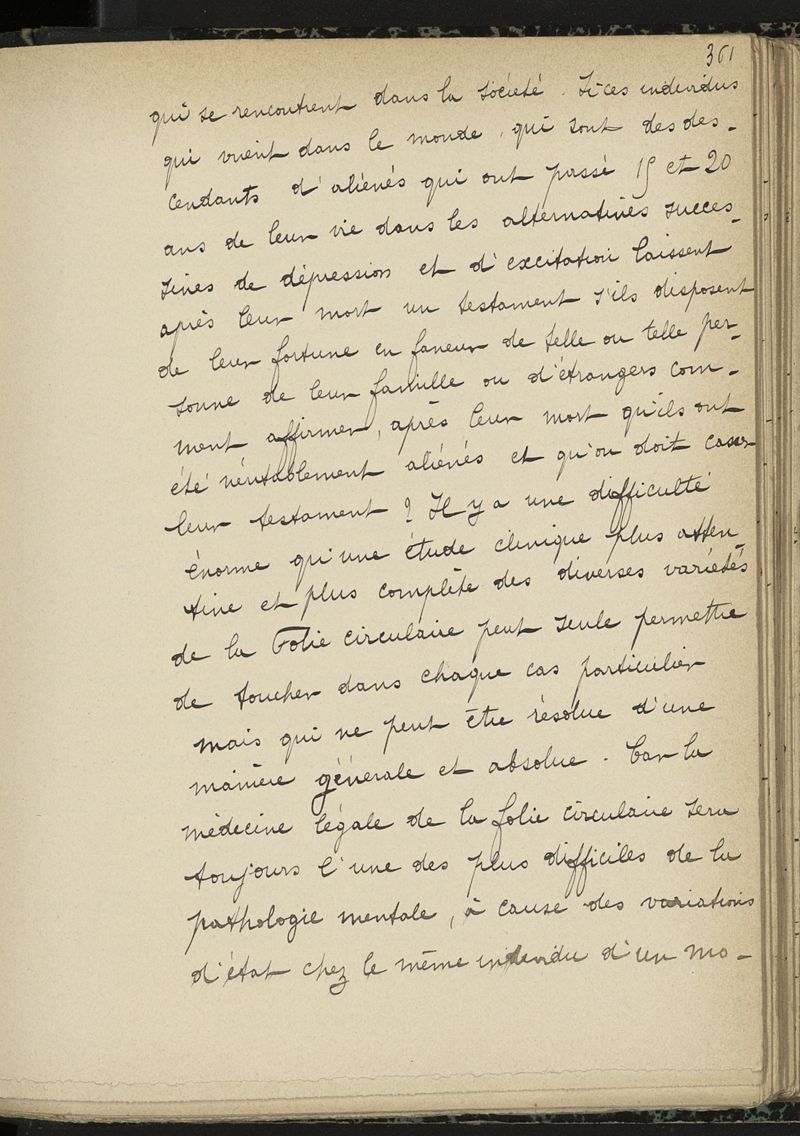 361
qui se rencontrent dans la société. Si ces individus
qui vivent dans le monde, qui sont des des-
cendants d'aliénés qui ont passé 15 et 20
ans de leur vie dans les alternatives succes-
sives de dépression et d'excitation laissent
après leur mort un testament s'ils disposent
de leur fortune en faveur de telle ou telle per-
sonne de leur famille ou d'étrangers com-
ment affirmer, après leur mort qu'ils ont
été véritablement aliénés et qu'on doit casser
leur testament ? Il y a une difficulté
énorme qu'une étude clinique plus atten-
tive et plus complète des diverses variétés
de la Folie circulaire peut seule permettre
de toucher dans chaque cas particulier
mais qui ne peut être résolue d'une
manière générale et absolue. Car la
médecine légale de la folie circulaire sera
toujours l'une des plus difficiles de la
pathologie mentale, à cause des variations
d'état chez le même individu d'un mo-